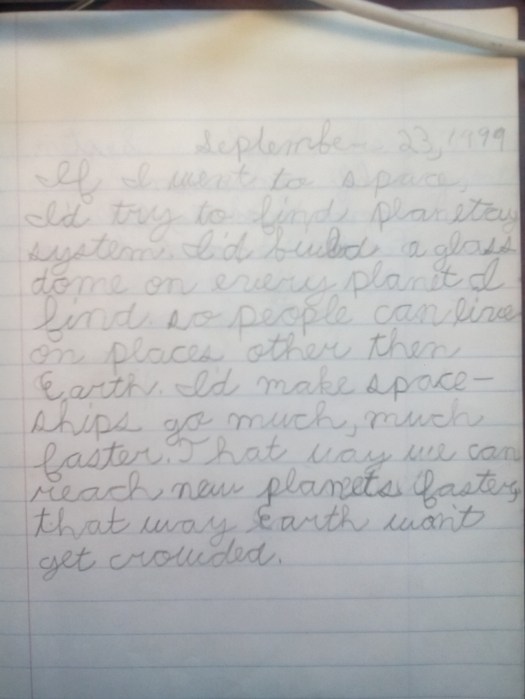 September 23, 1999
If I went to space,
I'd try to find planetay
system. I'd build a glass
dome on every planet I
find so people can live
on places other then
Earth. I'd make space-
ships go much, much
faster. That way we can
reach new planets faster,
that way Earth won't
get crowded.